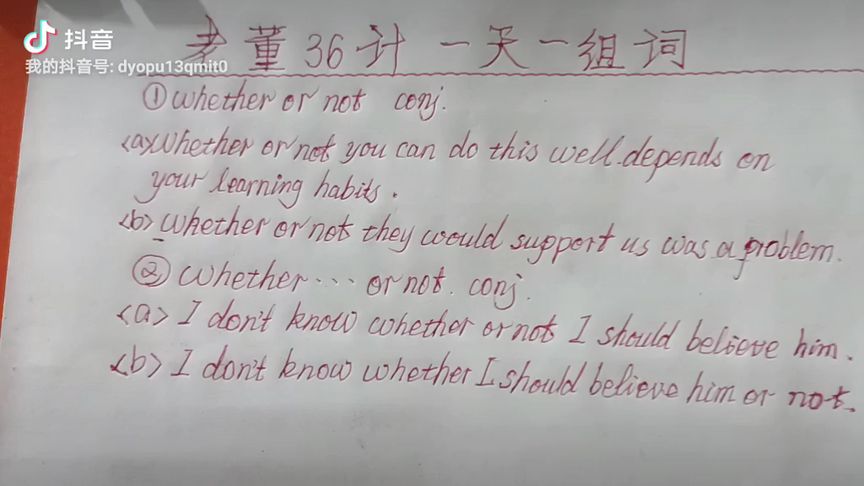 抖音
我的抖音号: dyopu13qmit0
老董36计 一天一组词
①whether or not conj.
<a>Whether or not you can do this well depends on
your learning habits.
<b>whether or not they would support us was a problem.
②whether... or not. conj.
<a> I don't know whether or not I should believe him.
<b> I don't know whether I should believe him or not.